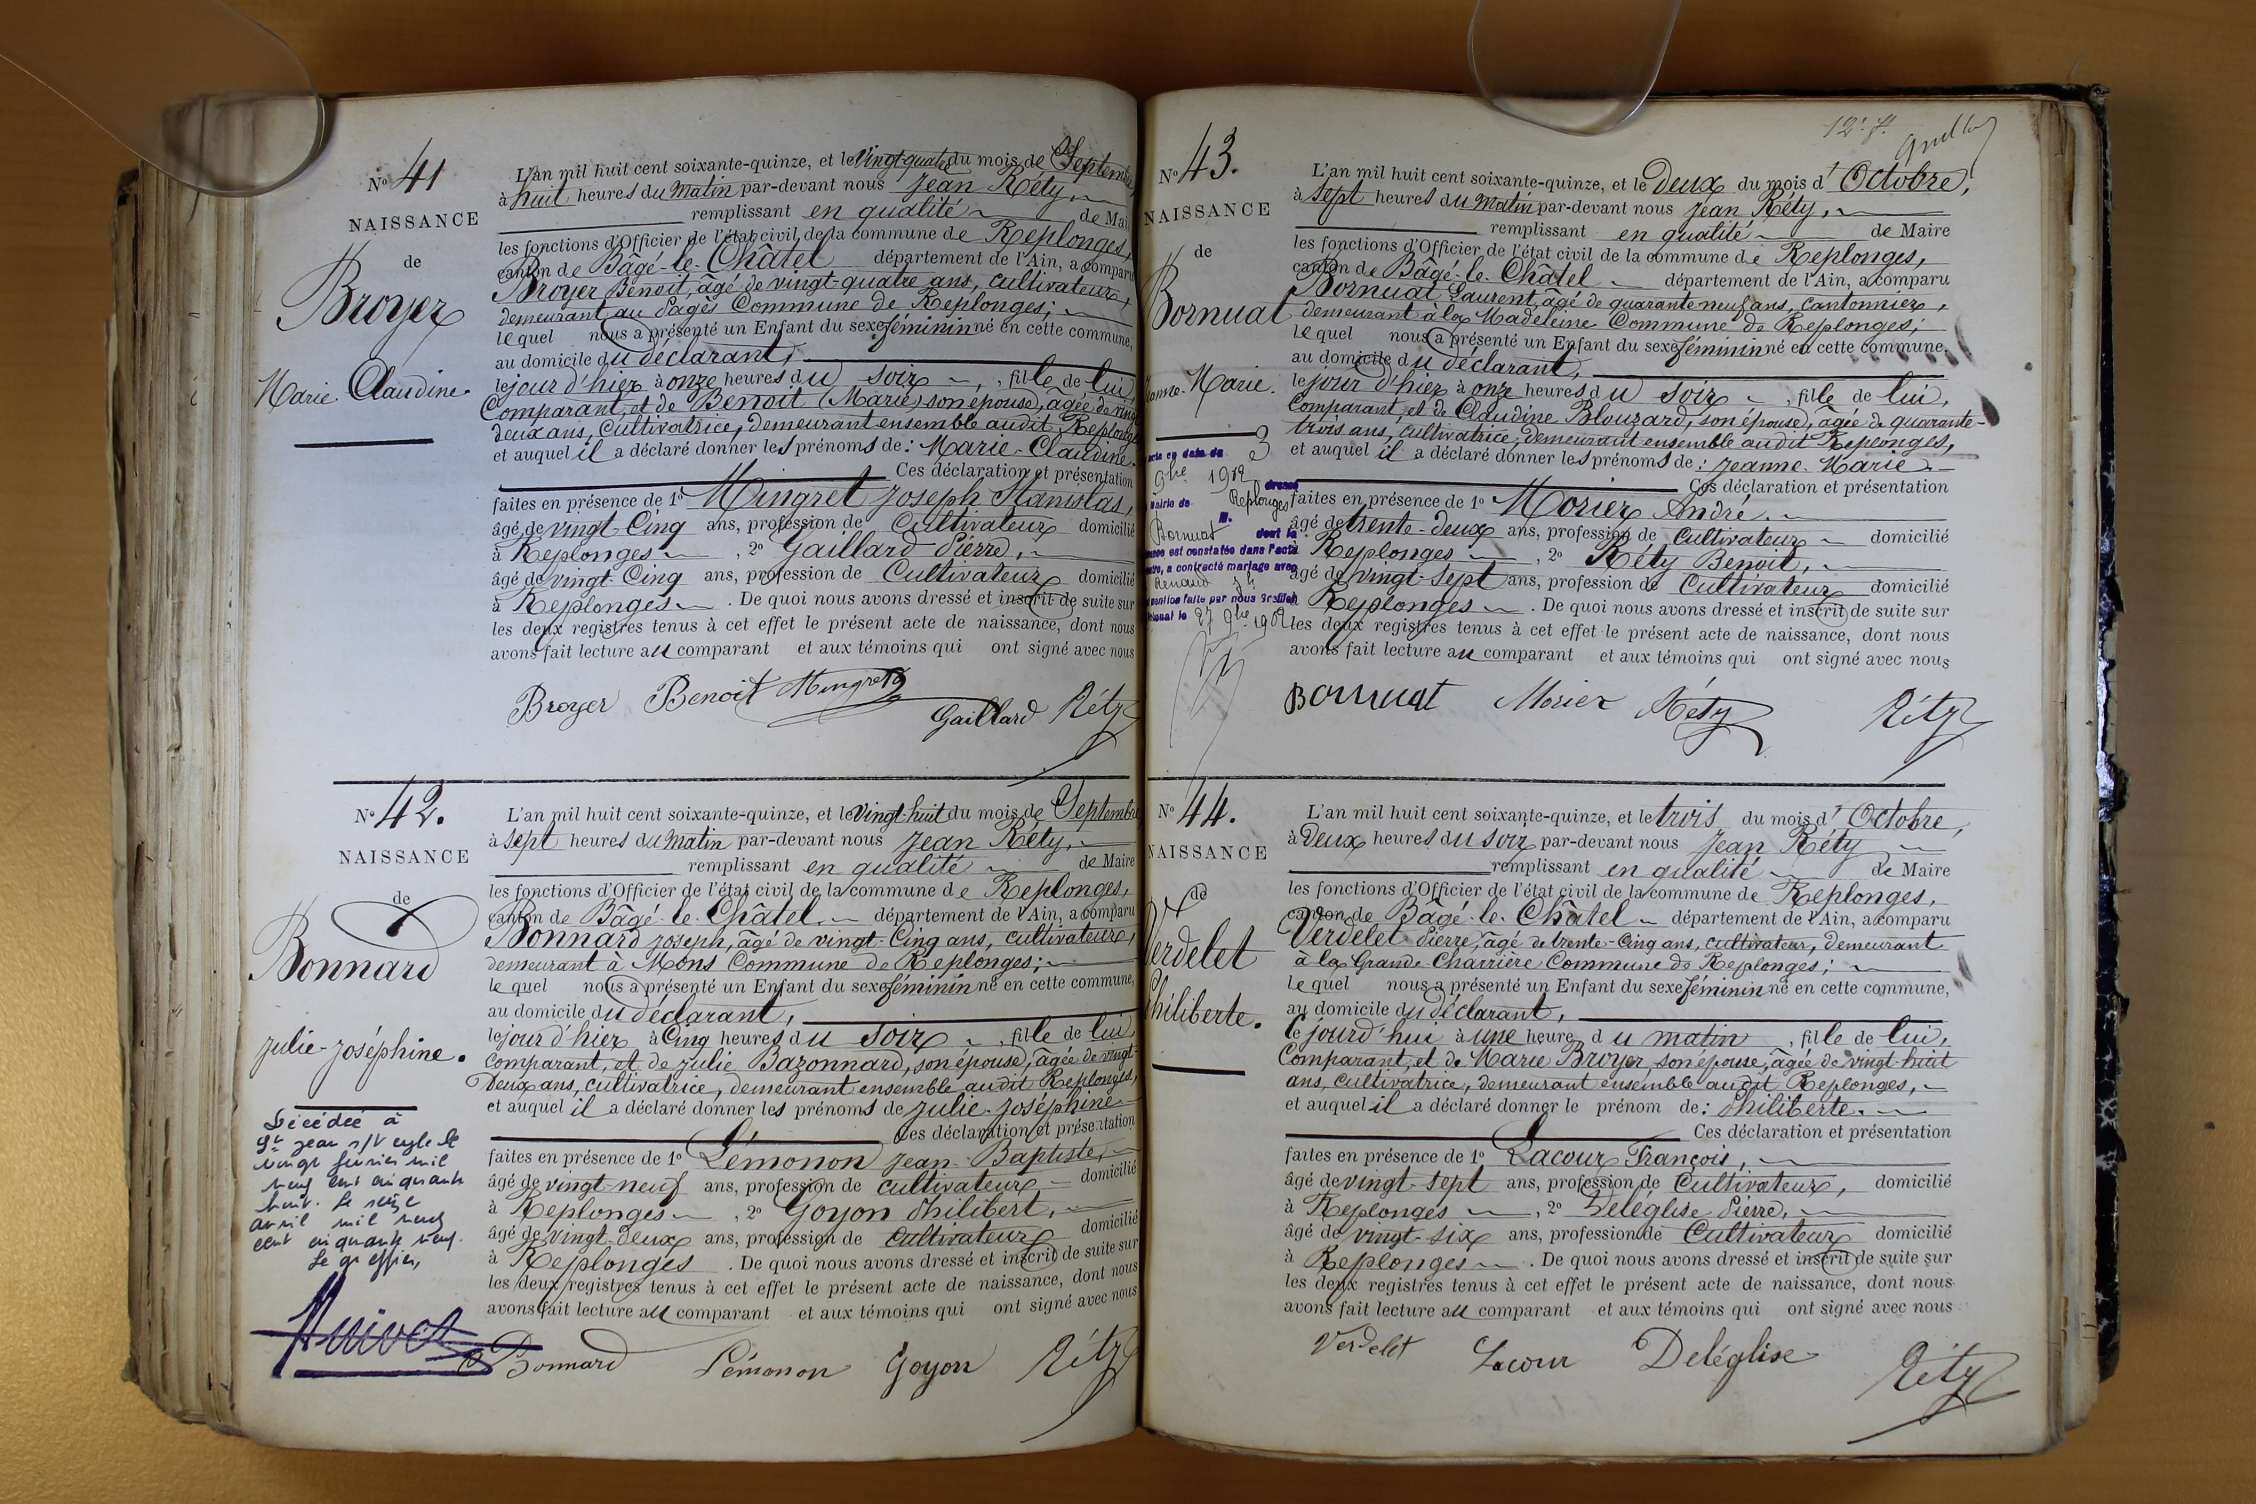 N° 41
NAISSANCE
de
Broyer
Marie Claudine.
L'an mil huit cent soixante-quinze, et le vingt-quatre du mois de Septembre
à huit heures du matin par-devant nous Jean Réty,
remplissant en qualité de Mai
les fonctions d'Officier de l'état civil de la commune de Replonges,
canton de Bâgé-le-Châtel département de l'Ain, a comparu
Broyer Benoit, âgé de vingt-quatre ans, cultivateur,
demeurant au Pagès Commune de Replonges;
lequel nous a présenté un Enfant du sexe féminin né en cette commune,
au domicile du déclarant,
le jour d'hier à onze heures du soir, fille de lui,
Comparant, et de Benoit (Marie) son épouse, âgée de vingt
deux ans, Cultivatrice, demeurant ensemble audit Replonges
et auquel il a déclaré donner les prénoms de: Marie-Claudine.
Ces déclaration et présentation
faites en présence de 1° Mingret Joseph Stanislas,
âgé de vingt-Cinq ans, profession de Cultivateur domicilié
à Replonges, 2° Gaillard Pierre,
âgé de vingt-Cinq ans, profession de Cultivateur domicilié
à Replonges. De quoi nous avons dressé et inscrit de suite sur
les deux registres tenus à cet effet le présent acte de naissance, dont nous
avons fait lecture au comparant et aux témoins qui ont signé avec nous
Broyer Benoit Mingret
Gaillard Réty
N° 42.
NAISSANCE
de
Bonnard
Julie-Joséphine.
Décédée à
St Jean s/Veyle le
vingt février mil
neuf cent cinquante
huit. Le seize
avril mil neuf
cent cinquante neuf.
Le greffier,
L'an mil huit cent soixante-quinze, et le vingt-huit du mois de Septembre
à sept heures du matin par-devant nous Jean Réty,
remplissant en qualité de Maire
les fonctions d'Officier de l'état civil de la commune de Replonges,
canton de Bâgé-le-Châtel département de l'Ain, a comparu
Bonnard Joseph, âgé de vingt-Cinq ans, cultivateur,
demeurant à Mons Commune de Replonges;
lequel nous a présenté un Enfant du sexe féminin né en cette commune,
au domicile du déclarant,
le jour d'hier à Cinq heures du soir, fille de lui
comparant, et de Julie Bazonnard, son épouse, âgée de vingt-
Deux ans, cultivatrice, demeurant ensemble audit Replonges,
et auquel il a déclaré donner les prénoms de Julie-Joséphine
Ces déclaration et présentation
faites en présence de 1° Lémonon Jean-Baptiste,
âgé de vingt-neuf ans, profession de cultivateur domicilié
à Replonges, 2° Goyon Philibert,
âgé de vingt-deux ans, profession de Cultivateur domicilié
à Replonges. De quoi nous avons dressé et inscrit de suite sur
les deux registres tenus à cet effet le présent acte de naissance, dont nous
avons fait lecture au comparant et aux témoins qui ont signé avec nous
Bonnard Lémonon Goyon Réty
12e f.
N° 43.
NAISSANCE
de
Bornuat
Jeanne-Marie.
acte en date du 3
9bre 1902
dressé
Mairie de Replonges
M.
Bornuat dont la
naissance est constatée dans l'acte
contre, a contracté mariage avec
Renaud
mention faite par nous Greffier
Tribunal le 27 9bre 1902
L'an mil huit cent soixante-quinze, et le Deux du mois d'Octobre,
à sept heures du matin par-devant nous Jean Réty,
remplissant en qualité de Maire
les fonctions d'Officier de l'état civil de la commune de Replonges,
canton de Bâgé-le-Châtel département de l'Ain, a comparu
Bornuat Laurent, âgé de quarante neuf ans, cantonnier,
demeurant à la Madeleine Commune de Replonges;
lequel nous a présenté un Enfant du sexe féminin né en cette commune,
au domicile du déclarant,
le jour d'hier à onze heures du soir, fille de lui,
Comparant, et de Claudine Blouzard, son épouse, âgée de quarante-
trois ans, cultivatrice, demeurant ensemble audit Replonges,
et auquel il a déclaré donner les prénoms de: Jeanne-Marie.
Ces déclaration et présentation
faites en présence de 1° Morier André.
âgé de trente-deux ans, profession de Cultivateur domicilié
à Replonges, 2° Réty Benoit,
âgé de vingt-sept ans, profession de Cultivateur domicilié
à Replonges. De quoi nous avons dressé et inscrit de suite sur
les deux registres tenus à cet effet le présent acte de naissance, dont nous
avons fait lecture au comparant et aux témoins qui ont signé avec nous
Bornuat Morier Réty Réty
N° 44.
NAISSANCE
de
Verdelet
Philiberte.
L'an mil huit cent soixante-quinze, et le trois du mois d'Octobre,
à Deux heures du soir par-devant nous Jean Réty
remplissant en qualité de Maire
les fonctions d'Officier de l'état civil de la commune de Replonges,
canton de Bâgé-le-Châtel département de l'Ain, a comparu
Verdelet Pierre, âgé de trente-Cinq ans, cultivateur, demeurant
à la Grande Charrière Commune de Replonges;
lequel nous a présenté un Enfant du sexe féminin né en cette commune,
au domicile du déclarant,
le jourd'hui à une heure du matin, fille de lui,
Comparant, et de Marie Broyer, son épouse, âgée de vingt-huit
ans, cultivatrice, demeurant ensemble audit Replonges,
et auquel il a déclaré donner le prénom de: Philiberte.
Ces déclaration et présentation
faites en présence de 1° Lacour François,
âgé de vingt-sept ans, profession de Cultivateur, domicilié
à Replonges, 2° Deléglise Pierre,
âgé de vingt-six ans, profession de Cultivateur domicilié
à Replonges. De quoi nous avons dressé et inscrit de suite sur
les deux registres tenus à cet effet le présent acte de naissance, dont nous
avons fait lecture au comparant et aux témoins qui ont signé avec nous
Verdelet Lacour Deléglise Réty